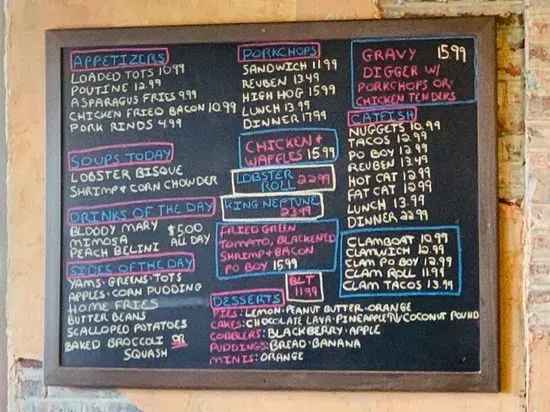 APPETIZERS
LOADED TOTS 10.99
POUTINE 12.99
ASPARAGUS FRIES 9.99
CHICKEN FRIED BACON 10.99
PORK RINDS 4.99
SOUPS TODAY
LOBSTER BISQUE
SHRIMP & CORN CHOWDER
DRINKS OF THE DAY
BLOODY MARY
MIMOSA
PEACH BELINI
$5.00
ALL DAY
SIDES OF THE DAY
YAMS · GREENS · TOTS
APPLES · CORN PUDDING
HOME FRIES
BUTTER BEANS
SCALLOPED POTATOES
BAKED BROCCOLI OR
SQUASH
PORKCHOPS
SANDWICH 11.99
REUBEN 13.49
HIGH HOG 15.99
LUNCH 13.99
DINNER 17.99
CHICKEN &
WAFFLES 15.99
LOBSTER
ROLL 22.99
KING NEPTUNE
23.99
FRIED GREEN
TOMATO, BLACKENED
SHRIMP & BACON
PO BOY 15.99
BLT
11.99
DESSERTS
PIES: LEMON · PEANUT BUTTER · ORANGE
CAKES: CHOCOLATE LAVA · PINEAPPLE/COCONUT POUND
COBBLERS: BLACKBERRY · APPLE
PUDDINGS: BREAD · BANANA
MINIS: ORANGE
GRAVY 15.99
DIGGER W/
PORKCHOPS OR
CHICKEN TENDERS
CATFISH
NUGGETS 10.99
TACOS 12.99
PO BOY 12.99
REUBEN 13.49
HOT CAT 12.99
FAT CAT 12.99
LUNCH 13.99
DINNER 22.99
CLAMBOAT 10.99
CLAMWICH 10.99
CLAM PO BOY 12.99
CLAM ROLL 11.99
CLAM TACOS 13.99